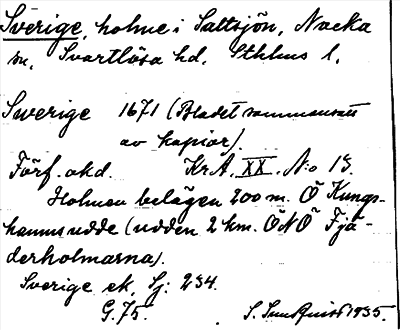 Sverige, holme i Saltsjön, Nacka
sn, Svartlösa hd. Sthlms l.
Swerige 1671 (Bladet sammansatt
av kopior).
Förf. okd. Kr.A. XX. No 13.
Holmen belägen 200 m. Ö Kungs-
hamnsudde (udden 2 km. ÖNÖ Fjä-
derholmarna).
Sverige ek. Sj: 234.
G. 75. S. Sundquist 1935.